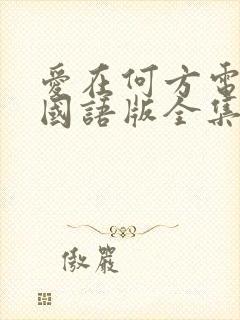 愛在何方電
國語版全集
傲嚴